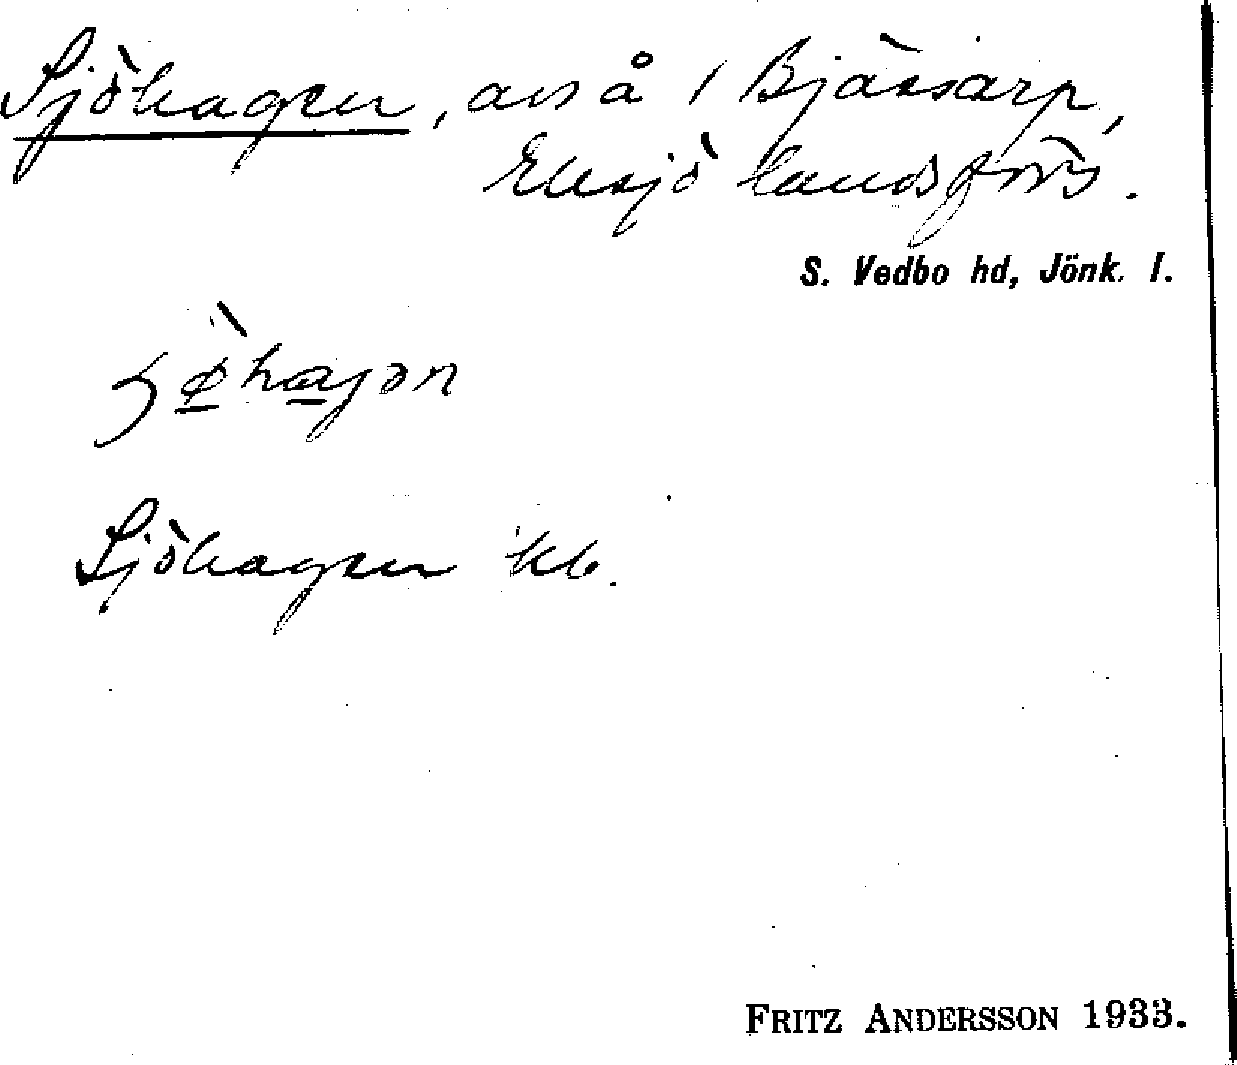 Sjöhagen, avs å i Bjässarp,
Eksjö landsförs.
S. Vedbo hd, Jönk. l.
Sjöhagen kb.
FRITZ ANDERSSON 1933.